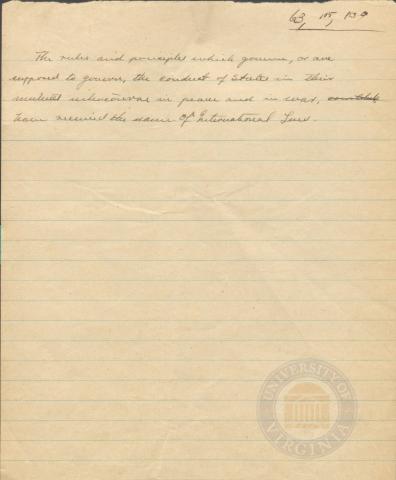 63, 115, 130
The rules and principles which govern, or are
supposed to govern, the conduct of States in their
mutual intercourse in peace and in war, constitute
have received the name of International Law.
UNIVERSITY OF VIRGINIA